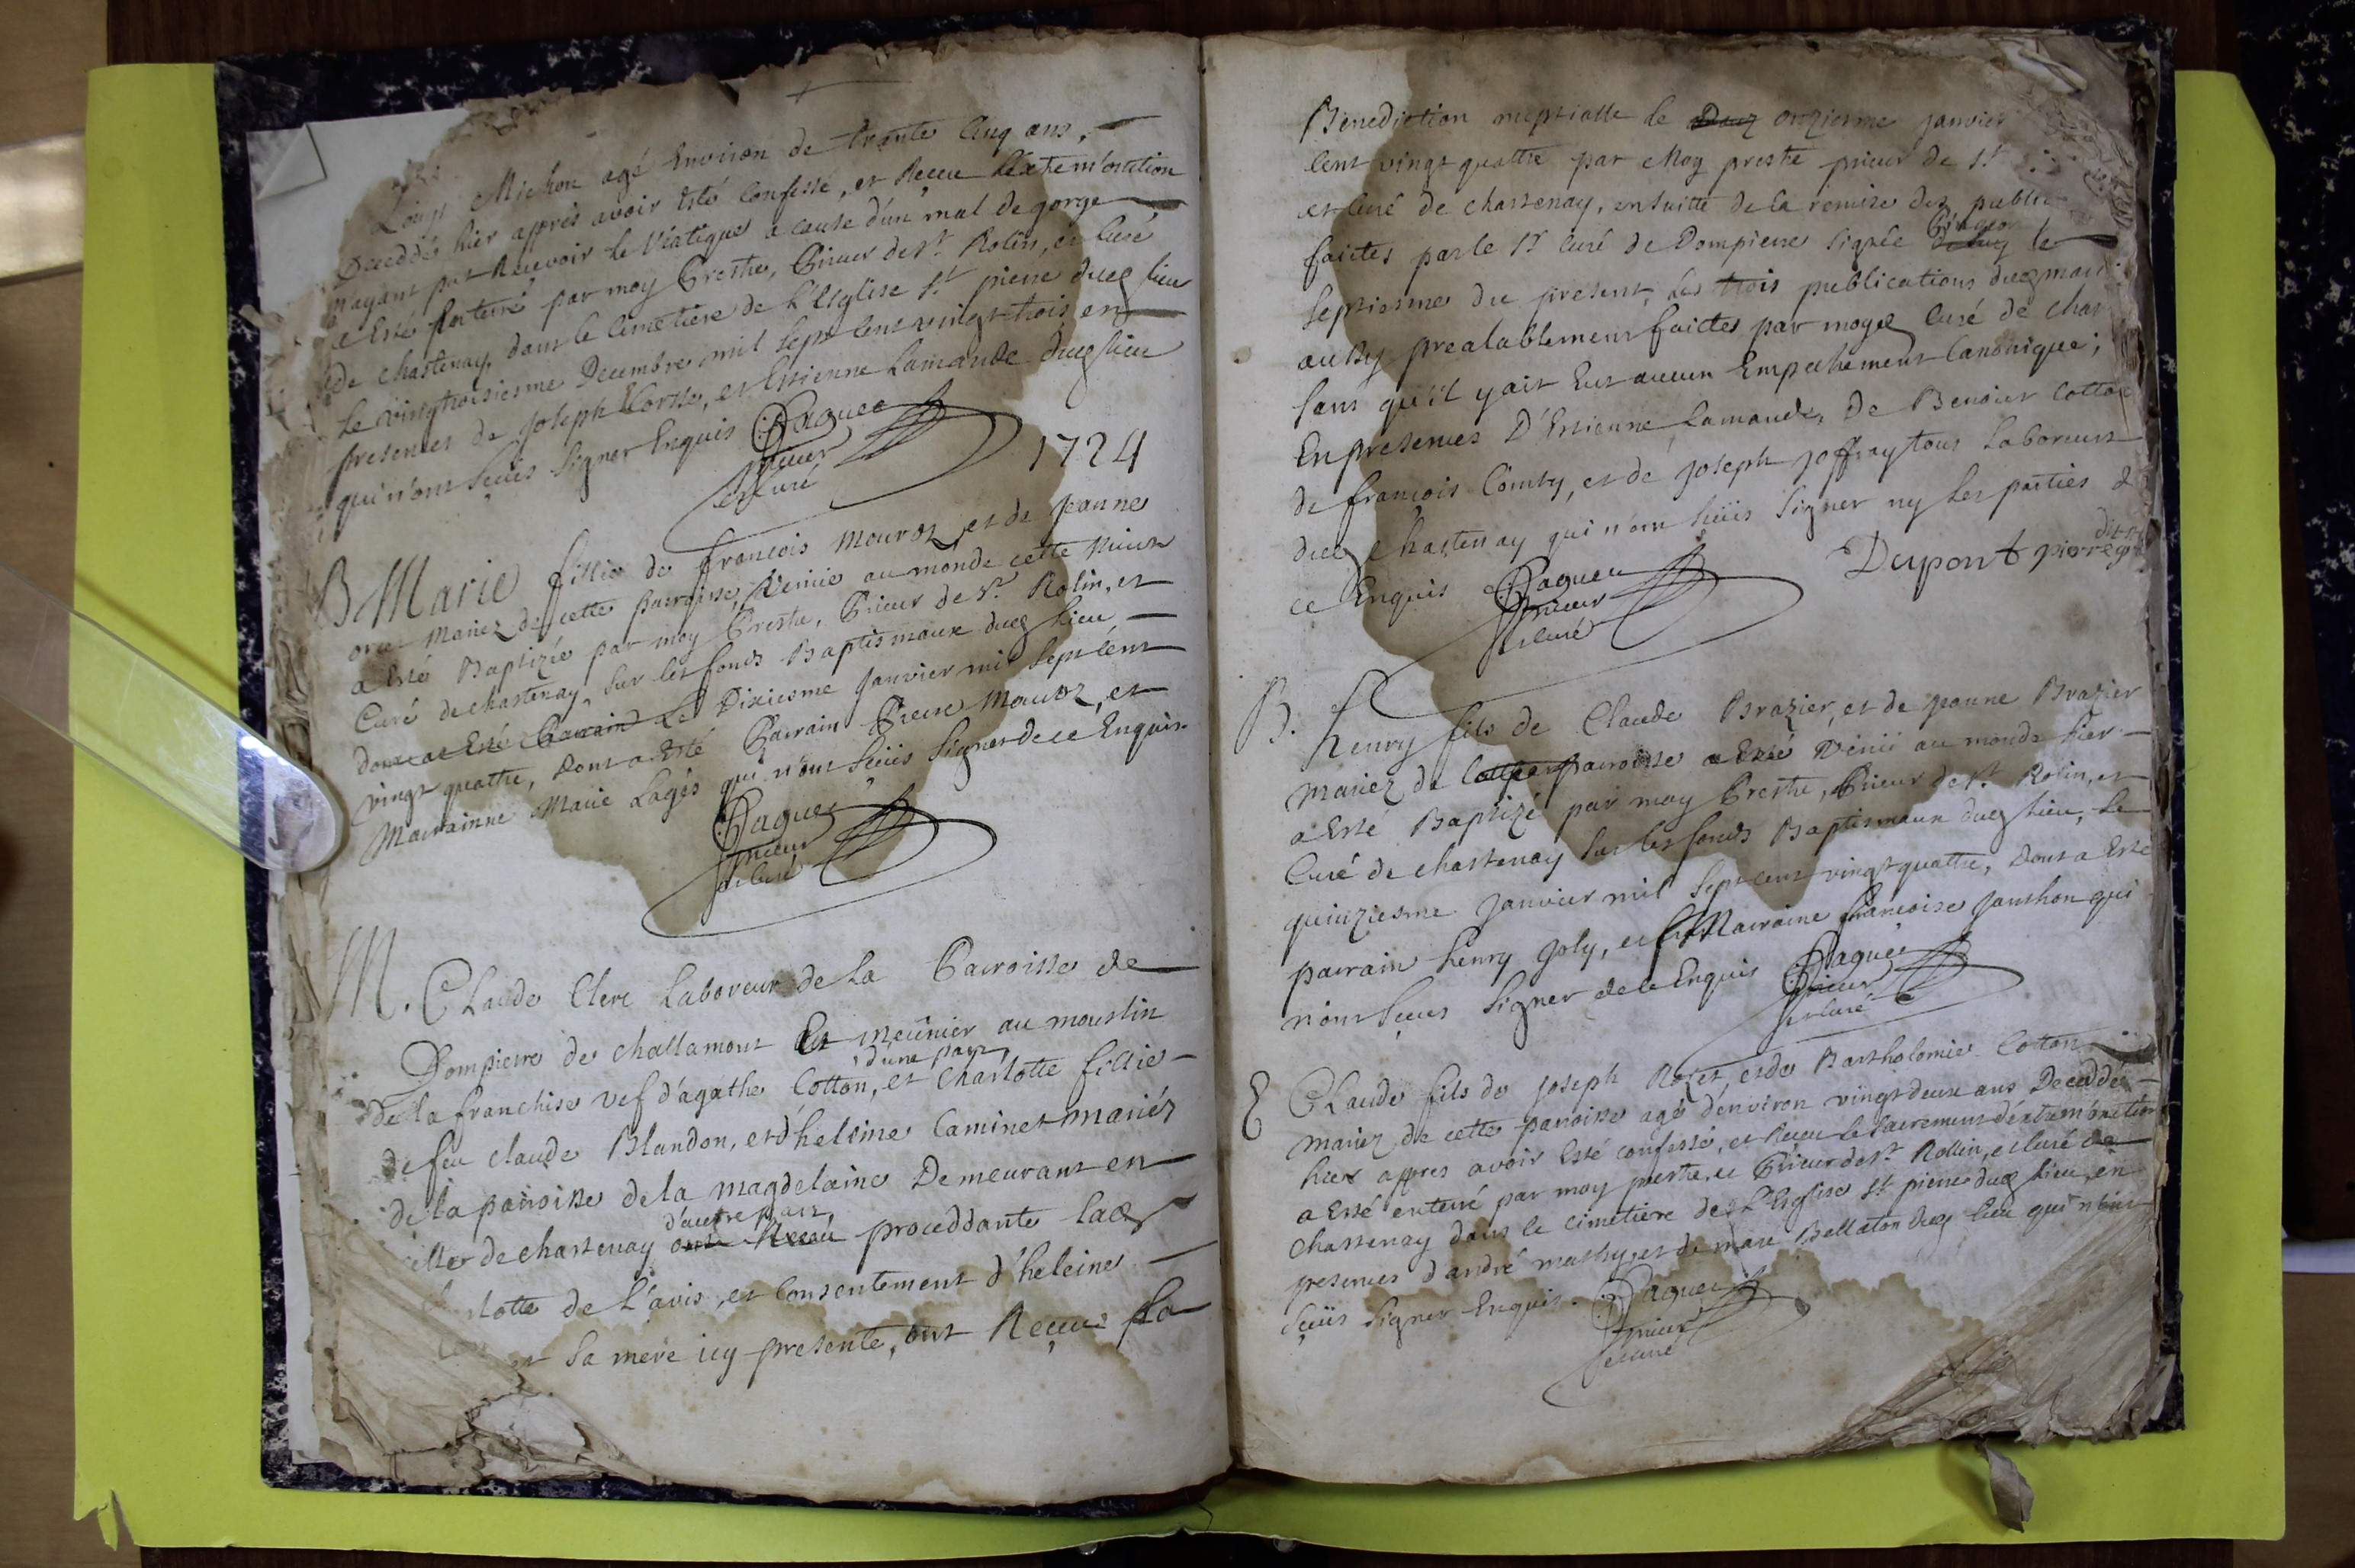 Louys Michon agé Environ de trante Cinq ans,
Deceddés hier apprés avoir Esté Confessé, et Receu l'extem'onction
n'ayant put Recevoir le Viatique a cause d'un mal de gorge
a Esté Enterré par moy Prestre, Prieur de St. Rolin, et Curé
de Chastenay, dans le Cimetiere de L'Esglise St. pierre ducq lieu
Le vingtroisiesme Decembre mil sept Cent vingt trois en
presences de Joseph et Estienne Lamande ducq lieu
qui n'ont sçeües signer Enquis Paquee
prieur
et curé
1724
B Marie fillie de françois Mouroz, et de Jeanne
mariez de cette parroisse, Venüe au monde cette Nuict
a Esté Baptizée par moy Prestre, Prieur de St. Rolin, et
Curé de chastenay, sur les fonds Baptismaux ducq Lieu
dont at Esté Parrain Le Dixiesme Janvier mil sept Cent
vingt quattre, Dont a Esté Parrain Pierre Mouroz, et
Marrainne Marie Lagés qui n'ont sceües signer de ce Enquis.
Paquee
prieur
et curé
M. Claude Clerc Laboreur de La Parroisse de
Dompierre de Challamont Et meûnier au moustin
d'une part,
de la franchise vef d'agathe Cotton, et Charlotte fillie
de feu claude Blandon, et d'heleine Caminet mariéz
de la paroisse de la magdelaine Demeurant en
d'autre part,
celle de chastenay ont Receu proceddante lacq
Charlotte de L'avis, et Consentement d'heleine
sa mere icy presente, ont Reçeue La
Benediction nuptialle le Douz onziesme janvier
Cent vingt quattre par Moy prestre prieur de St
et Curé de chastenay, ensuitte de la remise des public
faictes par le Sr Curé de Dompierre signée le
septiesme du present, Les trois publications ducq mari
aussy prealablement faictes par moycq Curé de Chas
sans qu'il y ait Eut aucun Empechement Canonique;
En presences D'Estienne Lamande, De Benoist Cotton
de françois Comby, et de Joseph Joffray tous Laboreurs
ducq Chastenay qui n'ont sceües signer ny les parties de
ce Enquis Paquee
prieur
et curé
Dupont pierre
B. Henry fils de Claude Brazier, et de Jeanne Brazier
mariez de parroisse a Esté Venü au monde hier
a Esté Baptizé par moy Prestre, Prieur de St. Rolin, et
Curé de chastenay sur les fonds Baptismaux ducq lieu, Le
quinziesme Janvier mil sept cent vingt quattre, Dont a Esté
parrain henry Joly, et Marraine françoise Janthon qui
n'ont sceües signer de ce Enquis Paquee
prieur
et curé
E Claude fils de Joseph Rozet, et de Bartholomie Cotton
mariez de cette parroisse agé d'environ vingt deux ans Deceddé
hier appres avoir Esté confessé, et Receu le sacrement d'extem'onction
a Esté enterré par moy prestre, et Prieur de St. Rollin, et Curé de
Chastenay dans le cimetiere de L'Esglise St. pierre ducq lieu, en
presences d'andré mathy, et de maré Bellaton ducq lieu qui n'ont
sçeües signer Enquis. Paquee
prieur
et curé